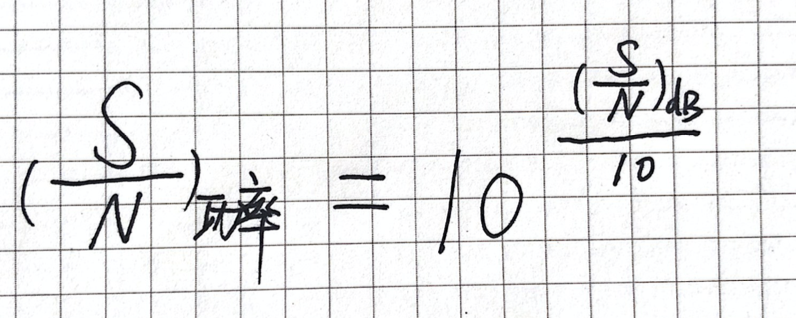 (S/N)功率 = 10^((S/N)dB/10)